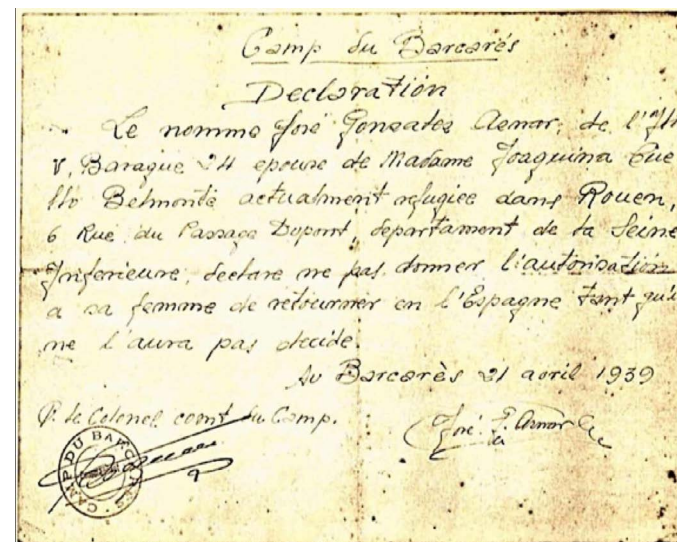 Camp du Barcarès
Declaration
Le nomme José Gonzales Aznar, de l'Ilh
V, Baraque 24 epouse de Madame Joaquina Cue
llo Belmonte actualment refugiee dans Rouen,
6 Rue du Passage Dupont, departament de la Seine
Inferieure, declare ne pas donner l'autorisation
a sa femme de retourner en l'Espagne tant qu'il
ne l'aura pas decide.
Au Barcarès 21 avril 1939
P. le Colonel comt du Camp.
José G. Aznar
CAMP DU BARCARES